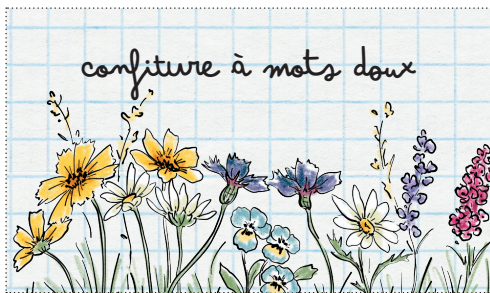 confiture à mots doux